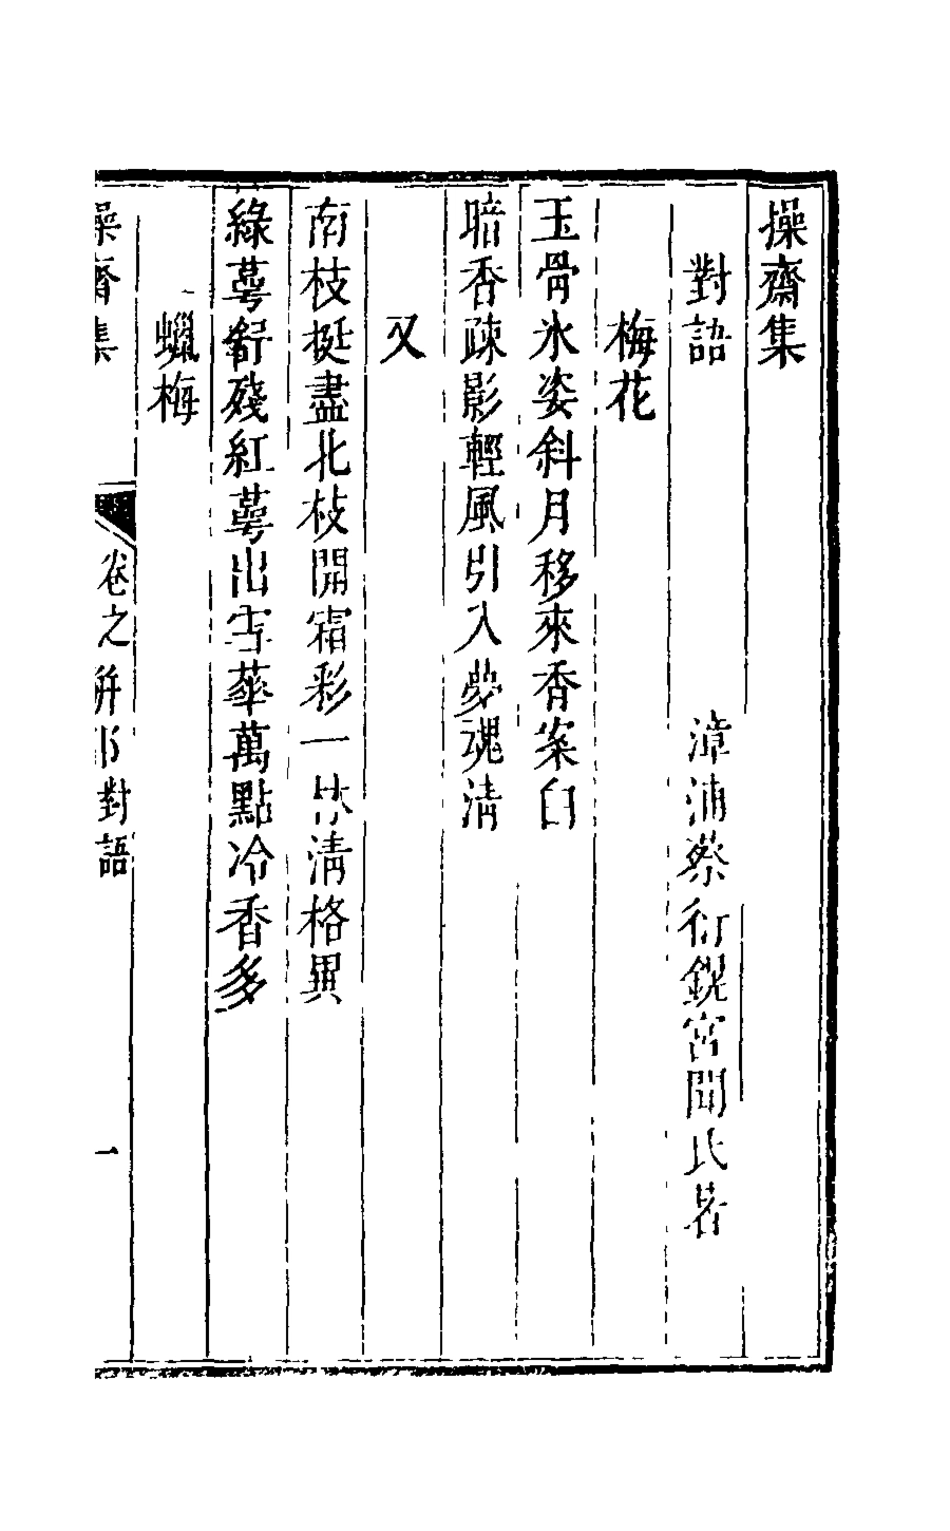 操齋集
對語
漳浦蔡衍鎤宮聞氏著
梅花
玉骨氷姿斜月移來香案白
暗香疎影輕風引入夢魂清
又
南枝挺盡北枝開霜彩一林清格異
綠萼舒殘紅萼出雪華萬點冷香多
蠟梅
操齋集
卷之 駢部對語
一